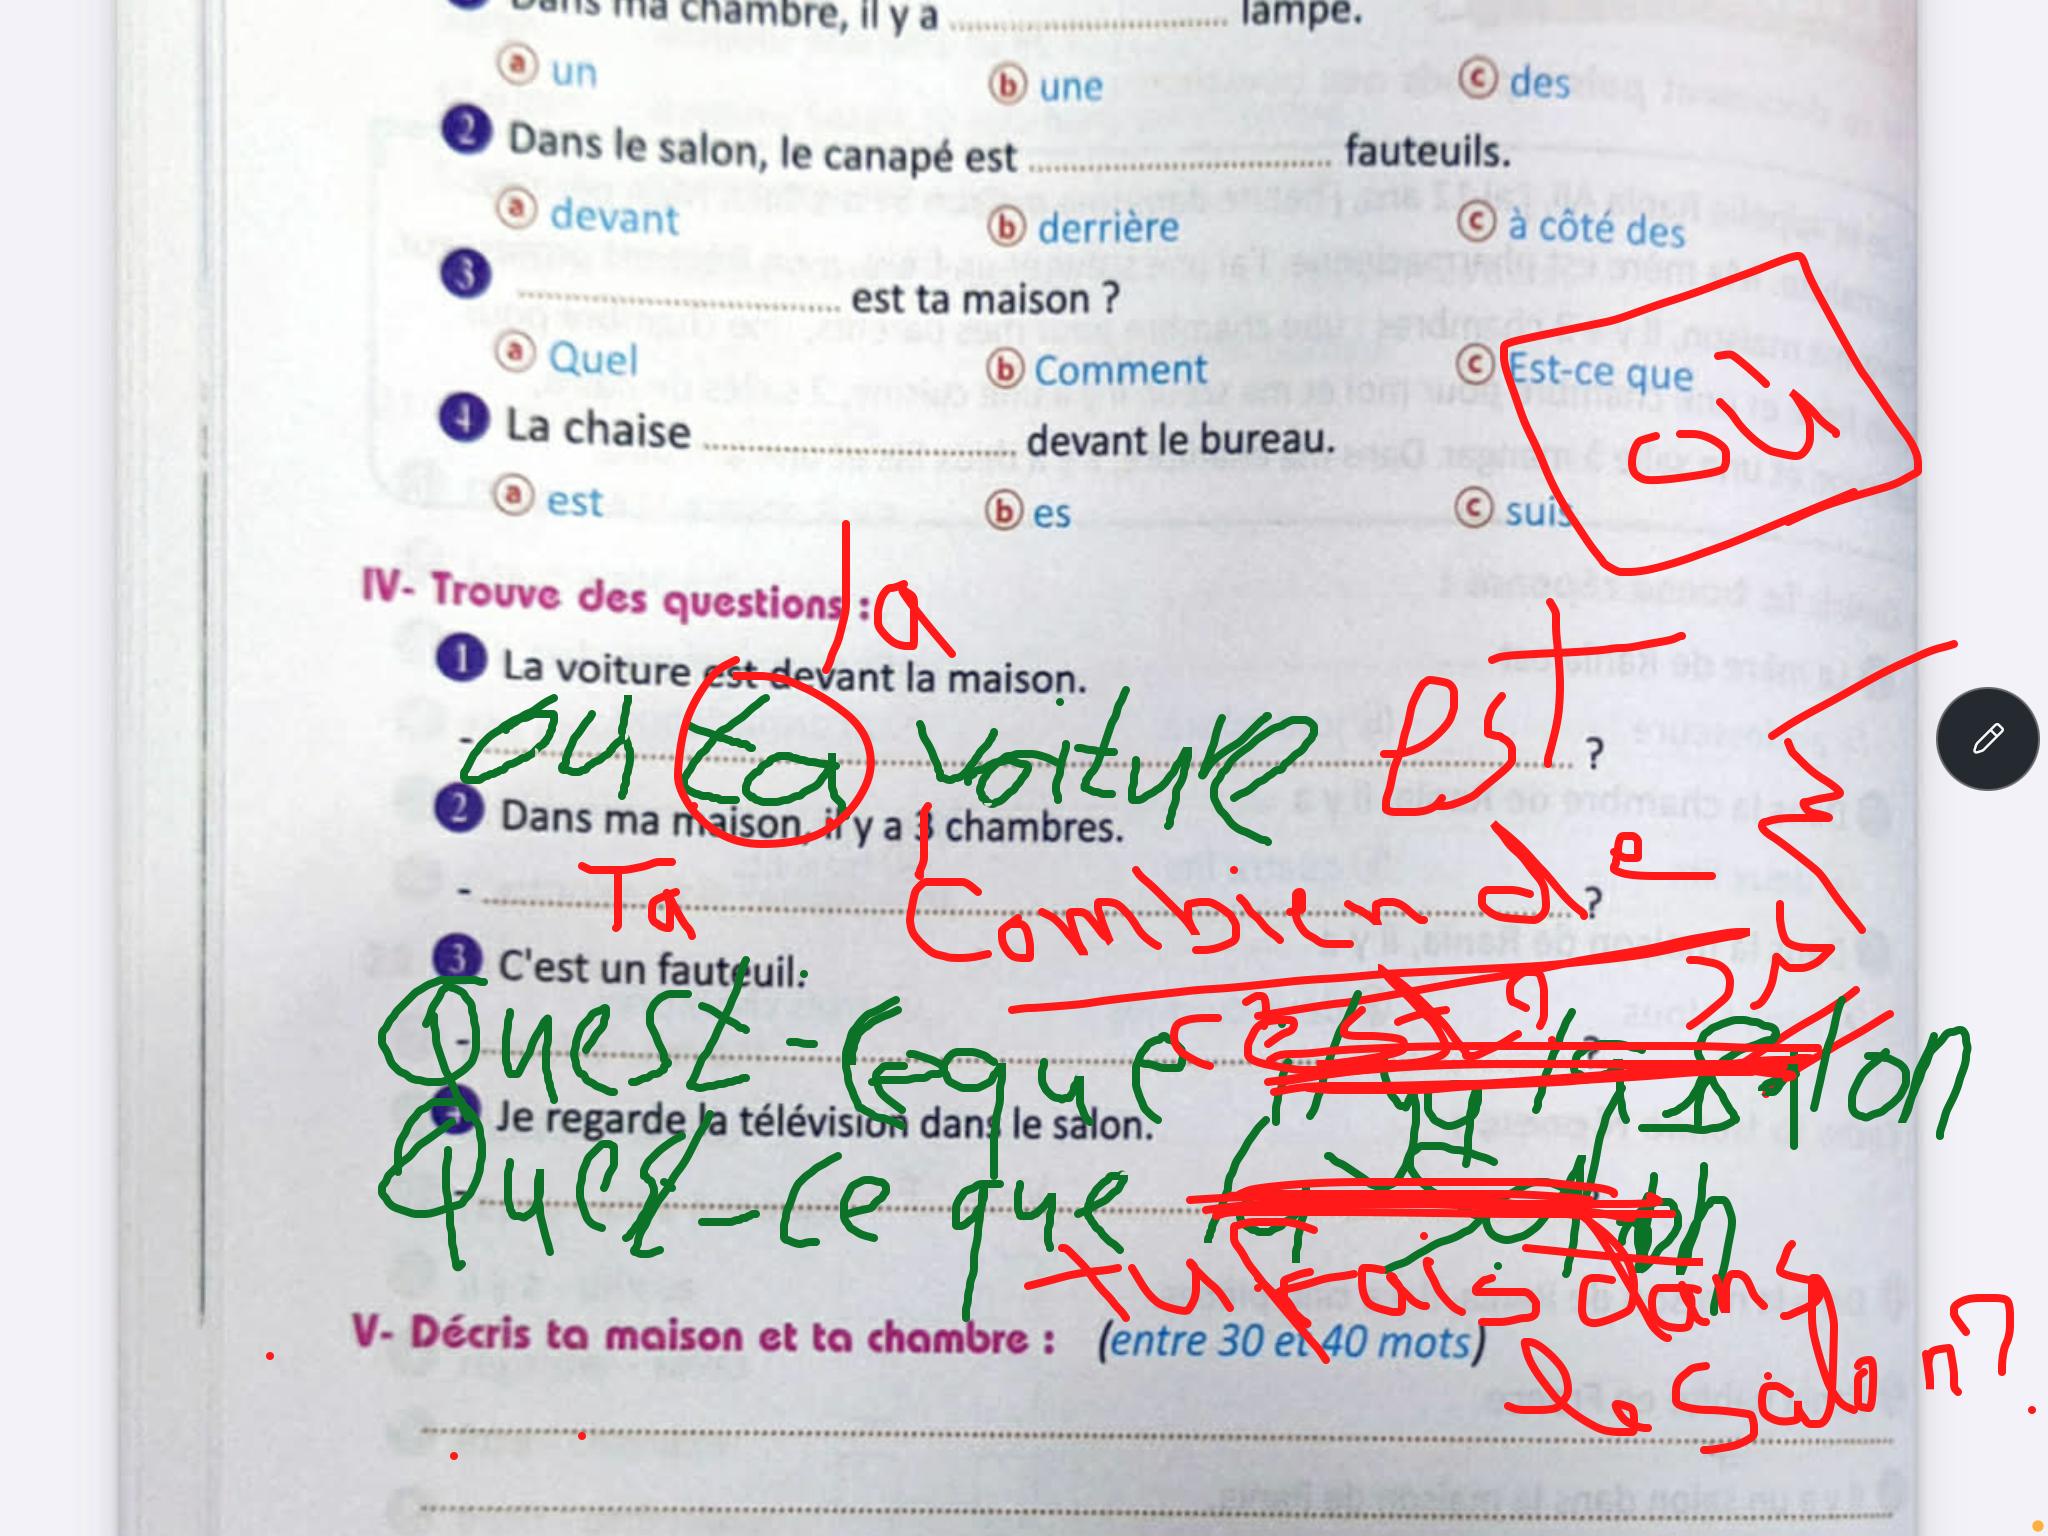 Dans ma chambre, il y a .................... lampe.
a un b une c des
2 Dans le salon, le canapé est .................... fauteuils.
a devant b derrière c à côté des
3 .................... est ta maison ?
a Quel b Comment c Est-ce que
où
4 La chaise .................... devant le bureau.
a est b es c suis
IV- Trouve des questions :
la
1 La voiture est devant la maison.
- ou ta voiture Est ?
2 Dans ma maison, il y a 3 chambres.
- Ta Combien de ?
3 C'est un fauteuil.
- Quest-ce que c'est ? salon
Je regarde la télévision dans le salon.
- Quest-ce que
tu Fais dans
V- Décris ta maison et ta chambre : (entre 30 et 40 mots)
le salon ?